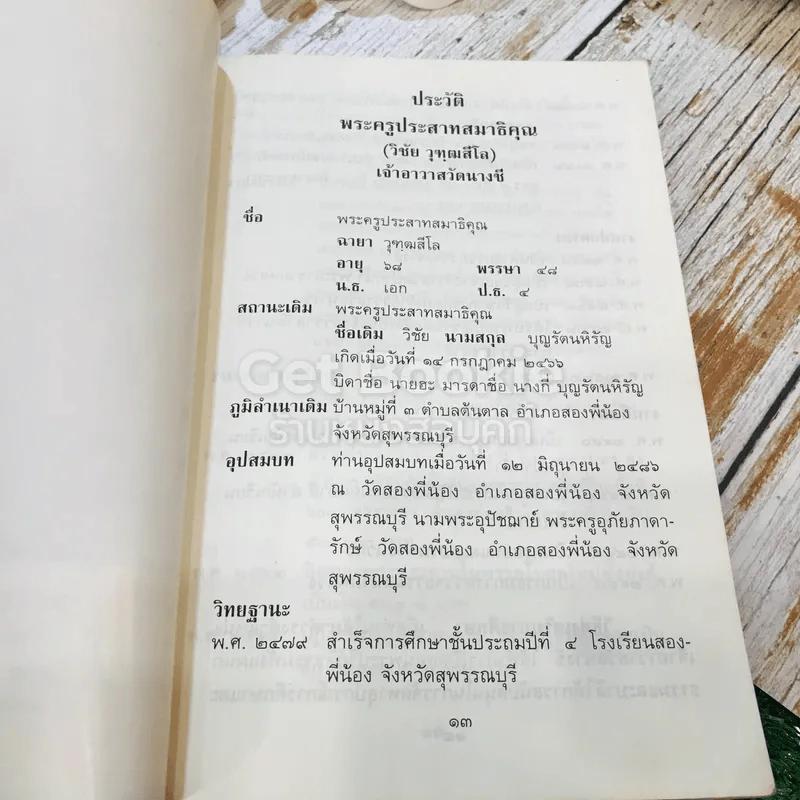 ประวัติ
พระครูประสาทสมาธิคุณ
(วิชัย วุฑฺฒสีโล)
เจ้าอาวาสวัดนางชี
ชื่อ พระครูประสาทสมาธิคุณ
ฉายา วุฑฺฒสีโล
อายุ ๖๘ พรรษา ๔๘
น.ธ. เอก ป.ธ. ๔
สถานะเดิม พระครูประสาทสมาธิคุณ
ชื่อเดิม วิชัย นามสกุล บุญรัตนหิรัญ
เกิดเมื่อวันที่ ๑๔ กรกฎาคม ๒๔๖๖
บิดาชื่อ นายฮะ มารดาชื่อ นางกี่ บุญรัตนหิรัญ
ภูมิลำเนาเดิม บ้านหมู่ที่ ๓ ตำบลต้นตาล อำเภอสองพี่น้อง
จังหวัดสุพรรณบุรี
อุปสมบท ท่านอุปสมบทเมื่อวันที่ ๑๒ มิถุนายน ๒๔๘๖
ณ วัดสองพี่น้อง อำเภอสองพี่น้อง จังหวัด
สุพรรณบุรี นามพระอุปัชฌาย์ พระครูอุภัยภาดา-
รักษ์ วัดสองพี่น้อง อำเภอสองพี่น้อง จังหวัด
สุพรรณบุรี
วิทยฐานะ
พ.ศ. ๒๔๗๙ สำเร็จการศึกษาชั้นประถมปีที่ ๔ โรงเรียนสอง-
พี่น้อง จังหวัดสุพรรณบุรี
๑๓